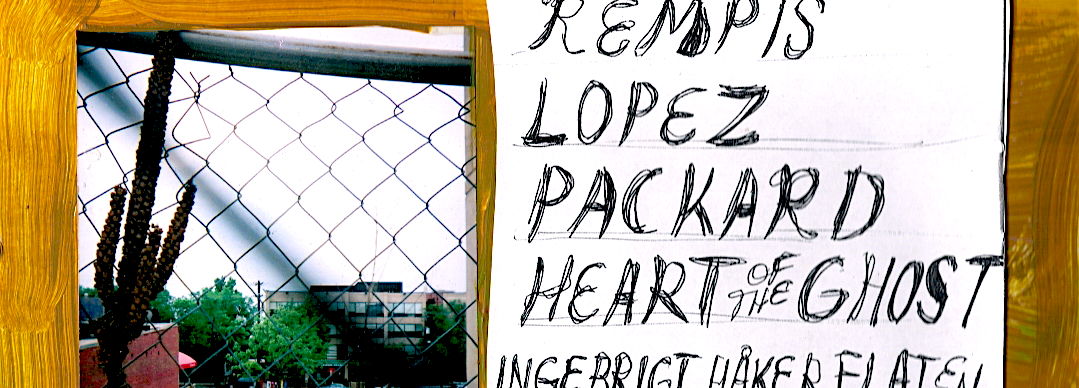 REMPIS
LOPEZ
PACKARD
HEART OF THE GHOST
INGEBRIGT HÅKER FLATEN